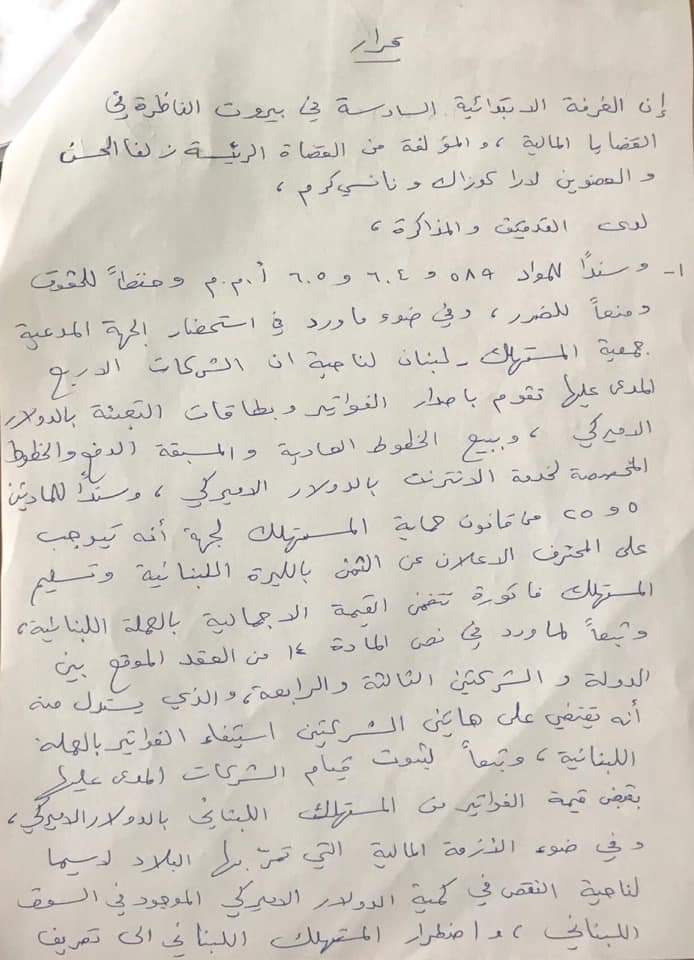 قرار
إن الغرفة الابتدائية السادسة في بيروت الناظرة في
القضايا المالية، والمؤلفة من القضاة الرئيسة زلفا الحسن
والعضوين لارا كوزاك ونانسي كرم،
لدى التدقيق والمذاكرة،
١- وسنداً للمواد ٥٨٩ و ٦٠٤ و ٦٠٥ أ.م.م وحفظاً للحقوق
ومنعاً للضرر، وفي ضوء ما ورد في استحضار الجهة المدعية
جمعية المستهلك - لبنان لناحية ان الشركات الاربع
المدعى عليها تقوم باصدار الفواتير وبطاقات التعبئة بالدولار
الاميركي، وببيع الخطوط العادية والمسبقة الدفع والخطوط
المخصصة لخدمة الانترنت بالدولار الاميركي، وسنداً للمادتين
٥ و ٢٥ من قانون حماية المستهلك لجهة أنه يتوجب
على المحترف الاعلان عن الثمن بالليرة اللبنانية وتسليم
المستهلك فاتورة تتضمن القيمة الاجمالية بالعملة اللبنانية،
وتبعاً لما ورد في نص المادة ١٤ من العقد الموقع بين
الدولة و الشركتين الثالثة والرابعة، والذي يستدل منه
أنه يقتضي على هاتين الشركتين استيفاء الفواتير بالعملة
اللبنانية، وتبعاً لثبوت قيام الشركات المدعى عليها
بقبض قيمة الفواتير من المستهلك اللبناني بالدولار الاميركي،
وفي ضوء الأزمة المالية التي تمرّ بها البلاد لاسيما
لناحية النقص في كمية الدولار الاميركي الموجود في السوق
اللبناني، واضطرار المستهلك اللبناني الى تصريف